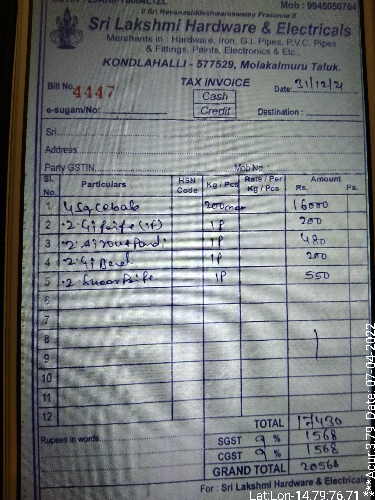 Mob : 9945050704
॥ Sri Revanasiddeshwaraswamy Prasanna ॥
Sri Lakshmi Hardware & Electricals
Merchants in : Hardware, Iron, G.I. Pipes, P.V.C. Pipes
& Fittings, Paints, Electronics & Etc.,
KONDLAHALLI - 577529, Molakalmuru Taluk.
TAX INVOICE
Bill No. 4447
Cash
Date: 31/12/21
e-sugam/No:
Credit
Destination :
Sri
Address
Party GSTIN.
Mob No :
Sl. No. Particulars HSN Code Kg / Pcs Rate / Per Kg / Pcs Amount Rs. Ps.
1 16000
2 1P 200
3 1P 480
4 1P 200
5 1P 550
6
7
8
9
10
11
12
TOTAL 17430
Rupees in words
SGST 9 % 1568
CGST 9 % 1568
GRAND TOTAL 20566
For : Sri Lakshmi Hardware & Electricals
Lat:Lon-1479:76.71
***Acur:3.79 Date:07-04-2022